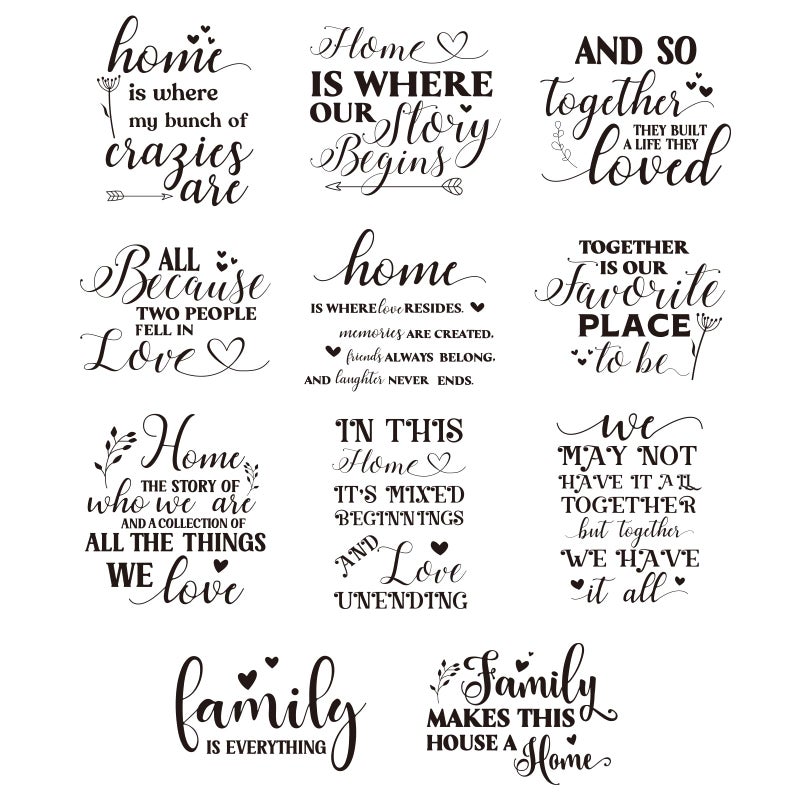 home
is where
my bunch of
crazies
are
Home
IS WHERE
OUR Story
Begins
AND SO
together
THEY BUILT
A LIFE THEY
loved
ALL
Because
TWO PEOPLE
FELL IN
Love
home
IS WHERE love RESIDES.
memories ARE CREATED,
friends ALWAYS BELONG,
AND laughter NEVER ENDS.
TOGETHER
IS OUR
Favorite
PLACE
to be
Home
THE STORY OF
who we are
AND A COLLECTION OF
ALL THE THINGS
WE love
IN THIS
Home
IT'S MIXED
BEGINNINGS
AND
Love
UNENDING
we
MAY NOT
HAVE IT ALL
TOGETHER
but together
WE HAVE
it all
family
IS EVERYTHING
Family
MAKES THIS
HOUSE A
Home